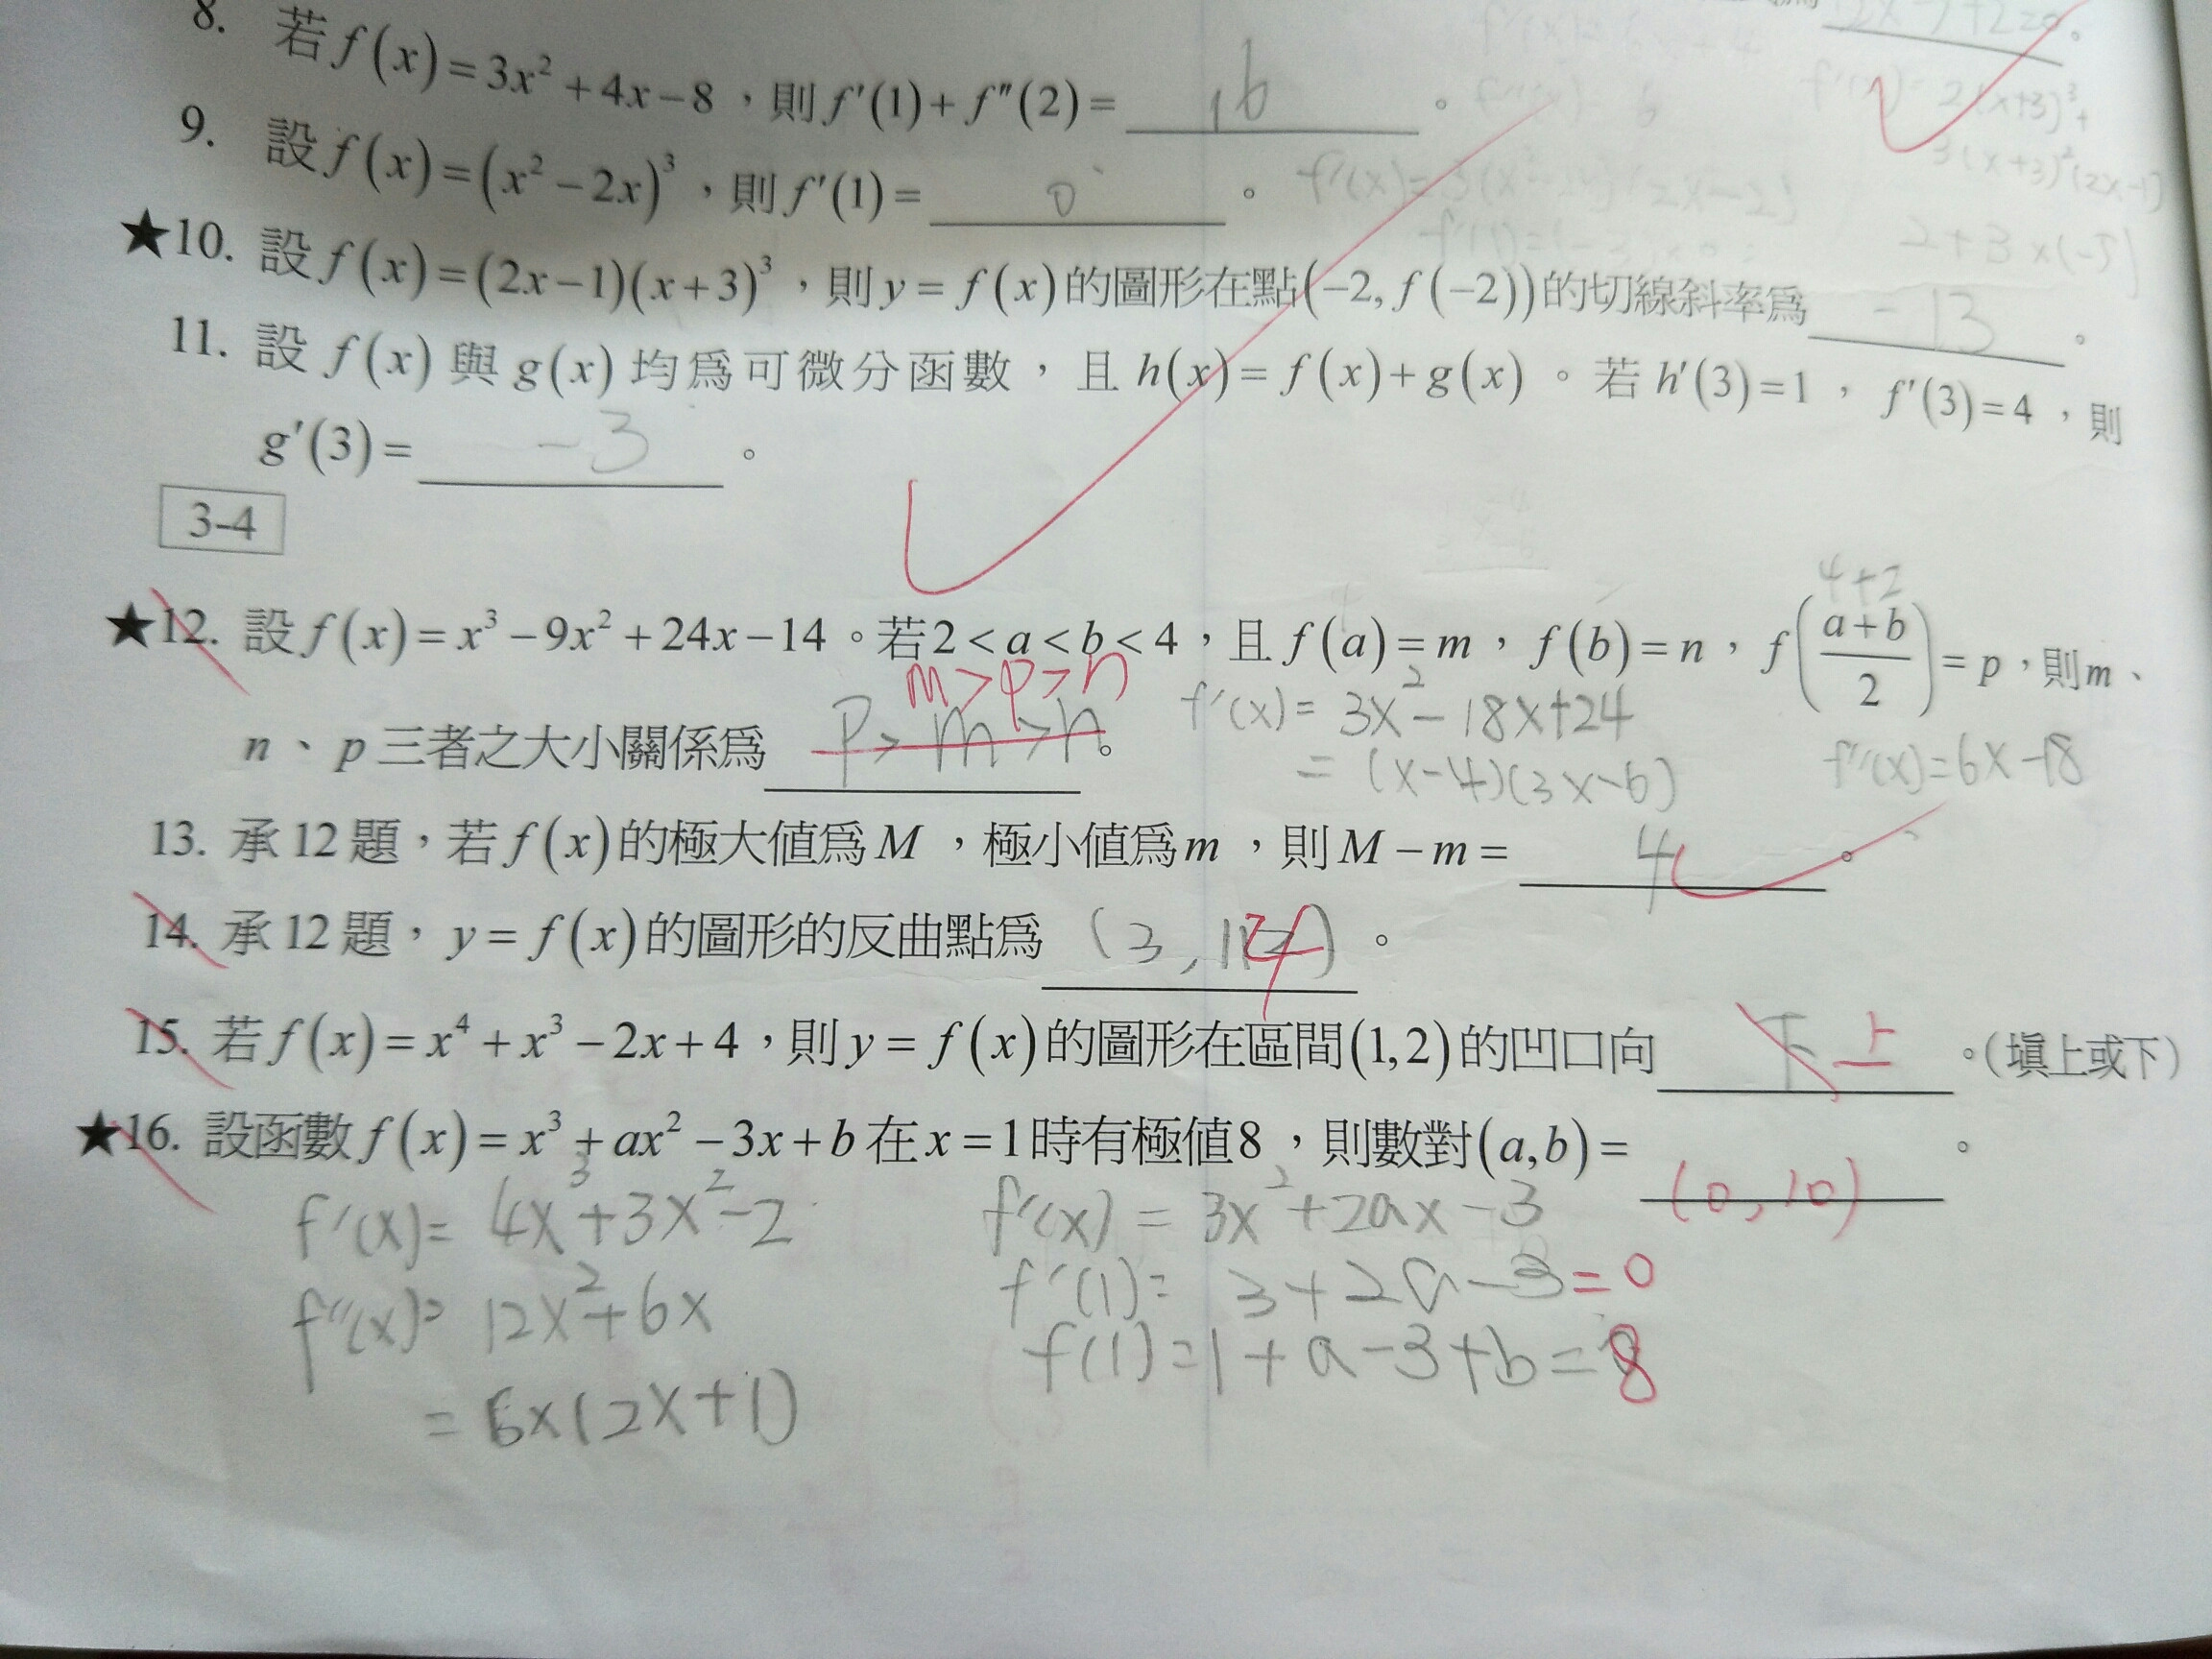 2x-7+2=0。
8. 若f(x)=3x²+4x-8，則f′(1)+f″(2)= 16 。
f′(x)=6x+4
f″(x)=6
f′(x)=2(x+3)³+
3(x+3)²(2x-1)
9. 設f(x)=(x²-2x)³，則f′(1)= 0 。
2+3×(-5)
★10. 設f(x)=(2x-1)(x+3)³，則y=f(x)的圖形在點(-2,f(-2))的切線斜率為 -13 。
11. 設f(x)與g(x)均為可微分函數，且h(x)=f(x)+g(x)。若h′(3)=1，f′(3)=4，則
g′(3)= -3 。
3-4
4+2
★12. 設f(x)=x³-9x²+24x-14。若2<a<b<4，且f(a)=m，f(b)=n，f((a+b)/2)=p，則m、
m>p>n
n、p三者之大小關係為 p>m>n 。
f′(x)=3x²-18x+24
=(x-4)(3x-6)
f″(x)=6x-18
13. 承12題，若f(x)的極大值為M，極小值為m，則M-m= 4 。
14. 承12題，y=f(x)的圖形的反曲點為 (3, 4) 。
15. 若f(x)=x⁴+x³-2x+4，則y=f(x)的圖形在區間(1,2)的凹口向 下 上 。(填上或下)
★16. 設函數f(x)=x³+ax²-3x+b在x=1時有極值8，則數對(a,b)= (0,10) 。
f′(x)=4x³+3x²-2
f″(x)=12x²+6x
=6x(2x+1)
f′(x)=3x²+2ax-3
f′(1)=3+2a-3=0
f(1)=1+a-3+b=8